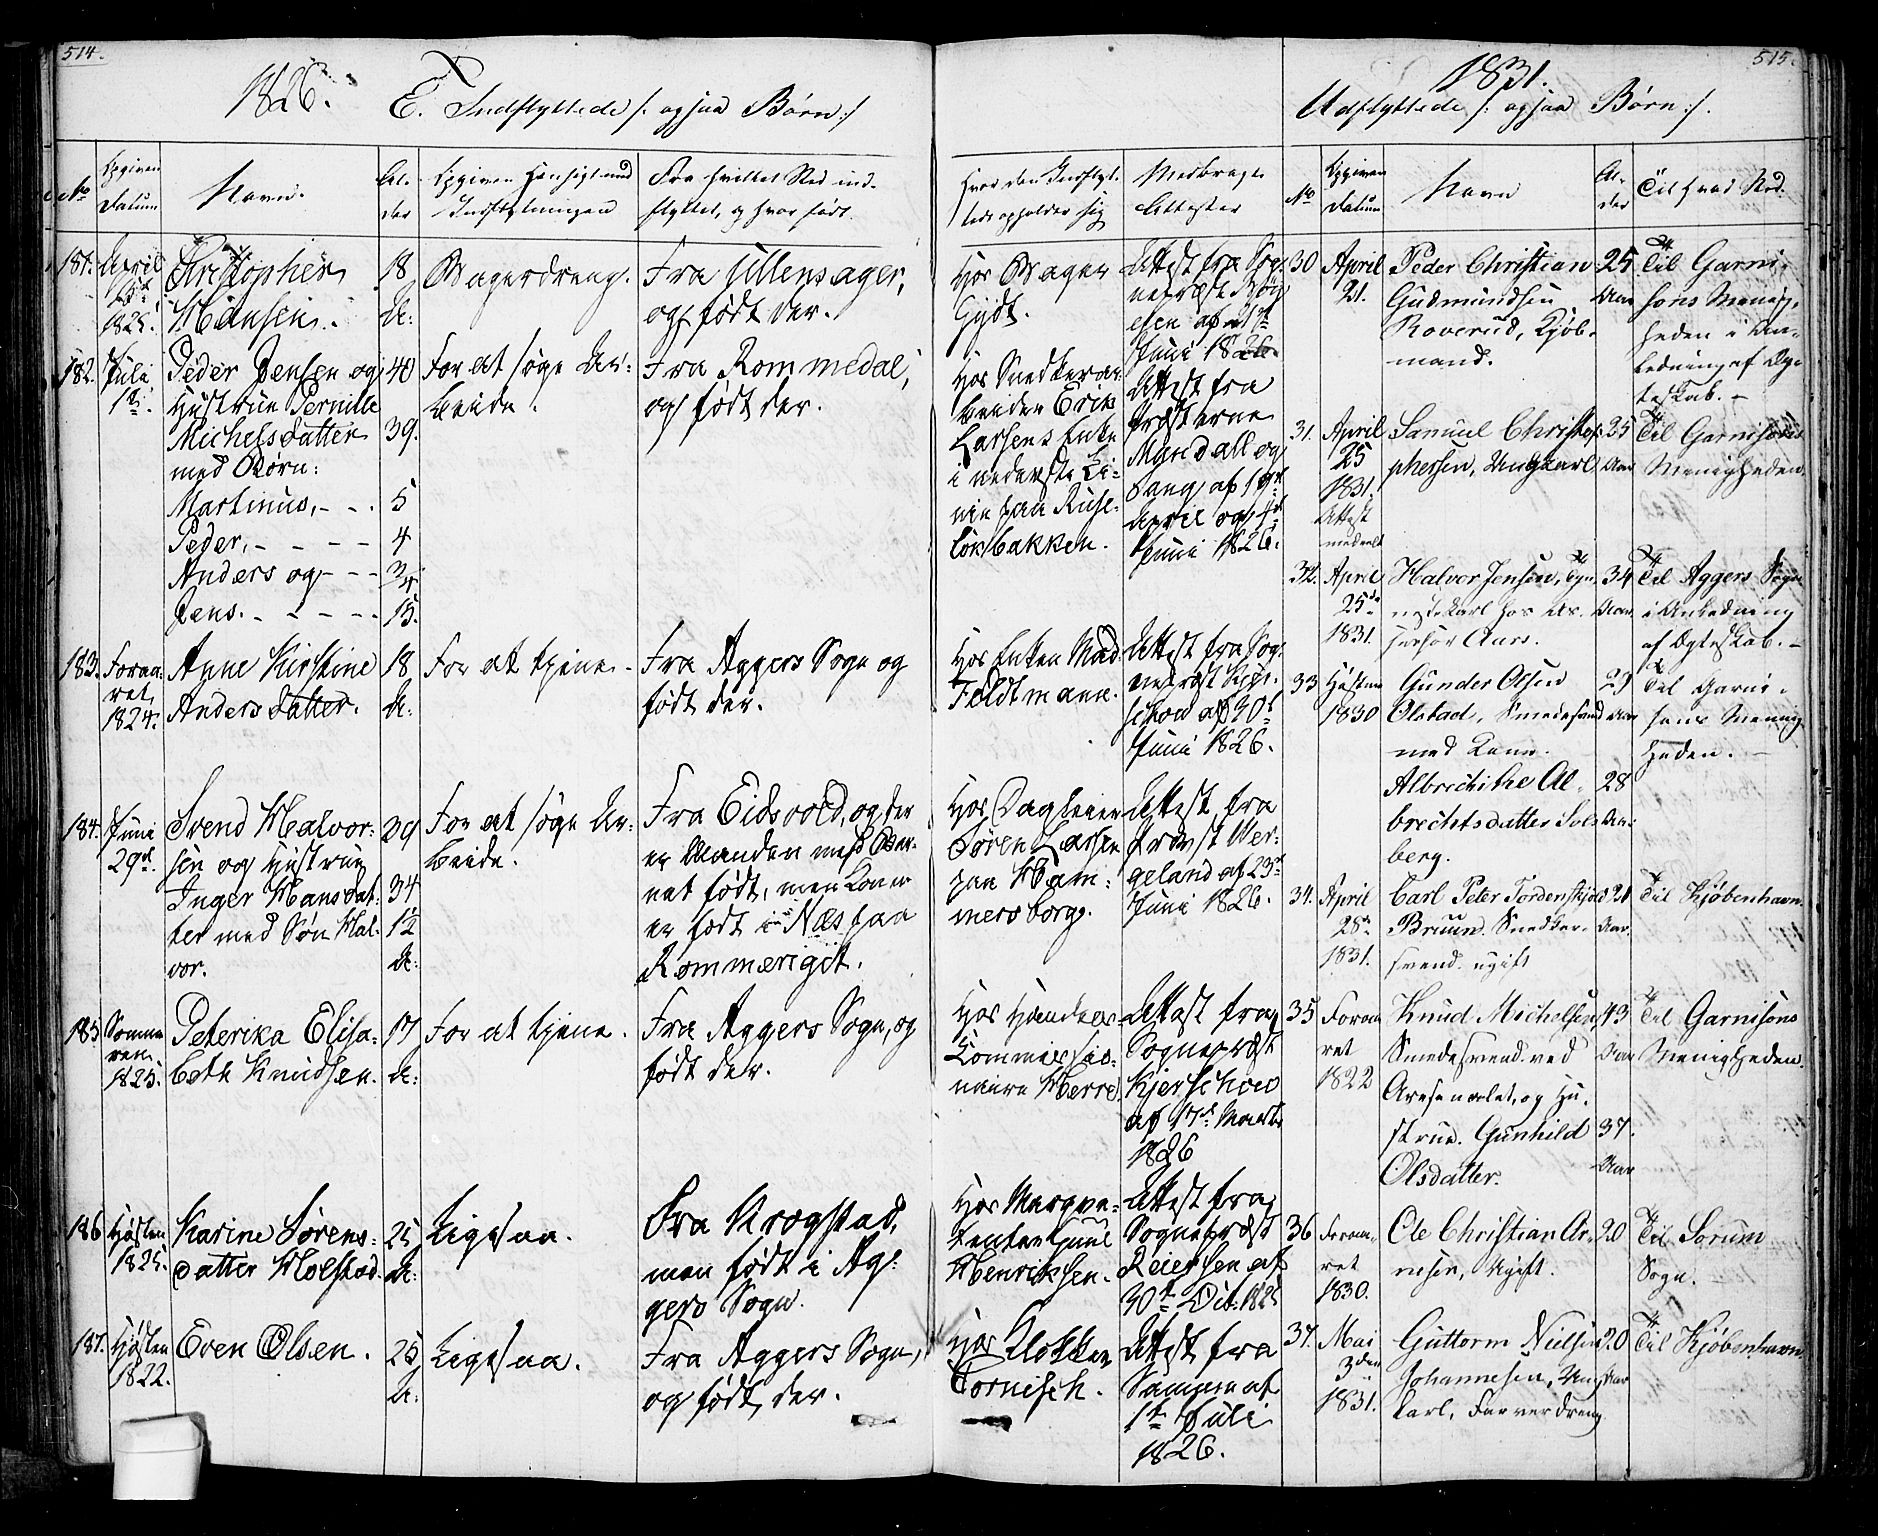 514.
1826.
E. Indflyttede /: ogsaa Børn :/
No
Opgiven Datum
Navn.
Al-
der
Opgiven Hensigt med
Indflytningen
Fra hvilket Sted ind-
flyttet, og hvor født.
Hvor den Indflyt-
tede opholder sig
Medbragte
Attester
181.
April
1825.
Christopher
Hansen.
18
A:
Bagerdreng.
Fra Ullensager,
og født der.
Hos Bager
Gydt.
Attest fra Sog-
nepræst
af 21de
Juni 1826.
182.
Juli
1ste.
Peder Jensen og
Hustrue Pernille
Michelsdatter
med Børn:
Martinus, - - .
Peder, - - - -
Anders og - - -
Jens. - - - - -
40
39.
5
4
3/4
15.
For at søge Ar-
beide.
Fra Rommedal,
og født der.
Hos Snedkerar-
beider Erik
Larsens Enke
i nederste Li-
nie paa Ruse-
løkbakken.
Attest fra
Præsterne
Mandall og
Fang af 19de
April og
Juni 1826.
183.
Foraa-
ret
1824.
Anne Kirstine
Andersdatter.
18
A:
For at tjene.
Fra Aggers Sogn og
født der.
Hos Enken Mad.
Feldtmann.
Attest fra Sog-
nepræst Kjer-
schow af 30te
Juni 1826.
184.
Juni
29de.
Svend Halvor-
sen og Hustrue
Inger Hansdat-
ter med Søn Hal-
vor.
39
34
12
A:
For at søge Ar-
beide.
Fra Eidsvold, og der
er Manden med Bar-
net født, men Konen
er født i Næs paa
Rommeriget.
Hos Dagleier
Søren Larsen
paa Ham-
mersborg.
Attest fra
Provst Wer-
geland af 23de
Juni 1826.
185
Somme-
ren
1825.
Peterika Elisa-
beth Knudsen.
17
A:
For at tjene.
Fra Aggers Sogn, og
født der.
Hos Handels-
Commissio-
nair Herre.
Attest fra
Sognepræst
Kjerschow
af 17de Marts
1826
186
Høsten
1825.
Karine Sørens-
datter Holstad.
25
A:
Ligesaa.
Fra Krogstad,
men født i Ag-
gers Sogn.
Hos Marqve-
tenter Juul
Henriksen.
Attest fra
Sognepræst
Reiersen af
30te Oct: 1825
187.
Høsten
1822.
Even Olsen.
25
A:
Ligesaa.
Fra Aggers Sogn,
og født der.
Hos Klokker
Cornisch.
Attest fra
Samme af
1ste Juli
1826.
515.
1831.
Udflyttede /: ogsaa Børn :/.
No
Opgiven Datum
Navn
Al-
der
Til hvad Sted.
30
April
21.
Peder Christian
Gudmundsen
Roverud, Kjøb-
mand.
25
Aar
Til Garni-
sons Menig-
heden i An-
ledning af Æg-
teskab. -
31.
April
25
1831.
Attest
meddelt
Samuel Christof-
phersen, Ungkarl
25
Aar
Til Garnisons
Menigheden.
32.
April
25de
1831.
Halvor Jensen, Tje-
nestekarl hos As-
sessor Aars.
34
Aar.
Til Aggers Sogn
i Anledning
af Ægteskab. -
33
Høsten
1830
Gunder Olsen
Olstad, Smedesvend
med Kone.
Albrechtke Al-
brechtsdatter Sol-
berg.
29
Aar
28
Aar
Til Garni-
sons Menig-
heden. -
34.
April
28de
1831.
Carl Peter Tordenskjold
Bruun. Snedker-
svend. ugift
21
Aar.
Til Kjøbenhavn.
35
Foraa-
ret
1822
Knud Michelsen,
Smedesvend ved
Aresenalet, og Hu-
strue. Gunhild
Olsdatter.
43
Aar
37.
Aar
Til Garnisons
Menigheden.
36
Foraa-
ret
1830.
Ole Christian Ar-
nesen, Ugift.
20
Til Sørum
Sogn.
37.
Mai
3den
1831.
Guttorm Nielsen
Johannesen, Ung-
karl, Farverdreng
20
Aar
Til Kjøbenhavn.